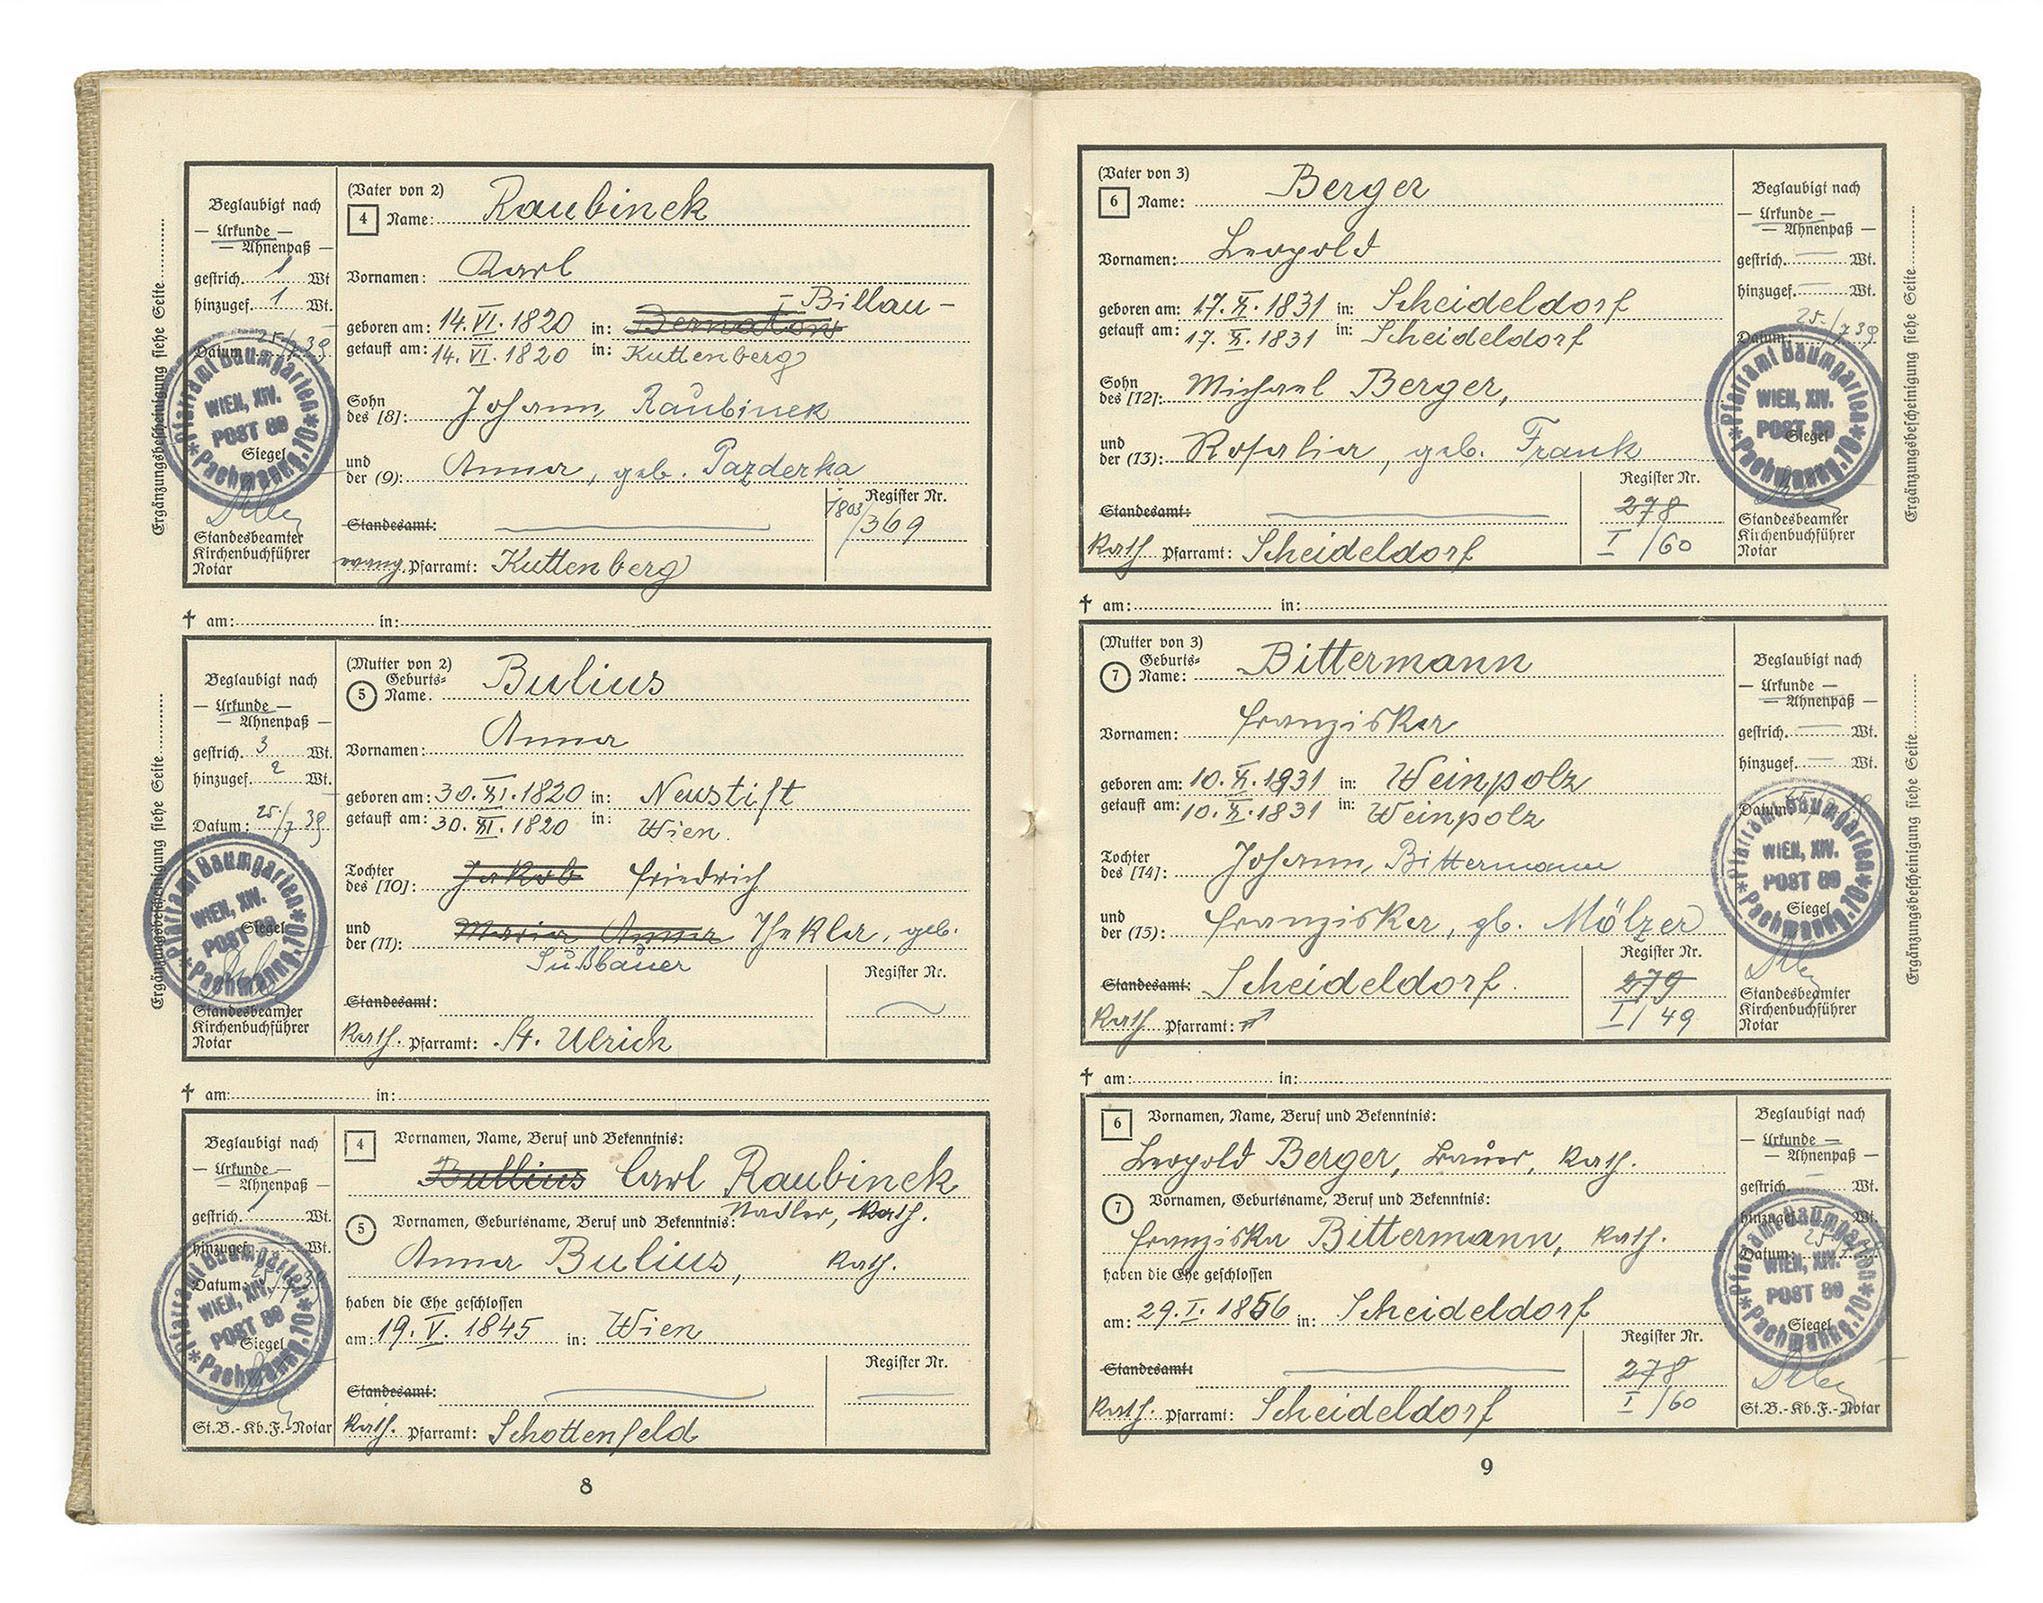 Ergänzungsbescheinigung siehe Seite
Beglaubigt nach
— Urkunde —
— Ahnenpaß —
gestrich. 1 Wt
hinzugef. 1 Wt.
Datum 25./7.39
Pfarramt Baumgarten
WIEN, XIV.
POST 89
Pachmanng. 10
Siegel
Standesbeamter
Kirchenbuchführer
Notar
(Vater von 2)
4 Name: Raubinek
Vornamen: Karl
Billau
geboren am: 14. VI. 1820 in:
getauft am: 14. VI. 1820 in: Kuttenberg
Sohn des [8]: Johann Raubinek
und der (9): Anna, geb. Pazderka
Register Nr.
1803/369
Standesamt:
Pfarramt: Kuttenberg
† am: in:
Ergänzungsbescheinigung siehe Seite
Beglaubigt nach
— Urkunde —
— Ahnenpaß —
gestrich. 3 Wt.
hinzugef. 2 Wt.
Datum: 25./7.39
Pfarramt Baumgarten
WIEN, XIV.
POST 89
Pachmanng. 10
Siegel
Standesbeamter
Kirchenbuchführer
Notar
(Mutter von 2)
5 Geburts-Name. Bulius
Vornamen: Anna
geboren am: 30. XI. 1820 in: Neustift
getauft am: 30. XI. 1820 in: Wien.
Tochter des [10]: Jakob Friedrich
und der (11): Maria Anna Thekla, geb.
Sußbauer
Register Nr.
Standesamt:
Kath. Pfarramt: St. Ulrich
† am: in:
Beglaubigt nach
— Urkunde —
— Ahnenpaß —
gestrich. 1 Wt.
hinzugef. Wt.
Datum:
Pfarramt Baumgarten
WIEN, XIV.
POST 89
Pachmanng. 10
Siegel
St.B.-Kb.F.-Notar
4 Vornamen, Name, Beruf und Bekenntnis:
Bullius Carl Raubinek
Nadler, Kath.
5 Vornamen, Geburtsname, Beruf und Bekenntnis:
Anna Bulius, Kath.
haben die Ehe geschlossen
am: 19. V. 1845 in: Wien
Register Nr.
Standesamt:
Kath. Pfarramt: Schottenfeld
8
(Vater von 3)
6 Name: Berger
Vornamen: Leopold
geboren am: 17. X. 1831 in: Scheideldorf
getauft am: 17. X. 1831 in: Scheideldorf
Sohn des [12]: Michael Berger,
und der (13): Rosalia, geb. Frank
Register Nr.
278
I/60
Standesamt:
Kath. Pfarramt: Scheideldorf
Beglaubigt nach
— Urkunde —
— Ahnenpaß —
gestrich. — Wt.
hinzugef. — Wt.
Datum: 25./7.39
Pfarramt Baumgarten
WIEN, XIV.
POST 89
Pachmanng. 10
Siegel
Standesbeamter
Kirchenbuchführer
Notar
Ergänzungsbescheinigung siehe Seite
† am: in:
(Mutter von 3)
7 Geburts-Name: Bittermann
Vornamen: Franziska
geboren am: 10. X. 1831 in: Weinpolz
getauft am: 10. X. 1831 in: Weinpolz
Tochter des [14]: Johann Bittermann
und der (15): Franziska, gb. Mölzer
Register Nr.
279
I/49
Standesamt: Scheideldorf.
Kath Pfarramt:
Beglaubigt nach
— Urkunde —
— Ahnenpaß —
gestrich. — Wt.
hinzugef. — Wt.
Datum:
Pfarramt Baumgarten
WIEN, XIV.
POST 89
Pachmanng. 10
Siegel
Standesbeamter
Kirchenbuchführer
Notar
Ergänzungsbescheinigung siehe Seite
† am: in:
6 Vornamen, Name, Beruf und Bekenntnis:
Leopold Berger, Bauer, Kath.
7 Vornamen, Geburtsname, Beruf und Bekenntnis:
Franziska Bittermann, Kath.
haben die Ehe geschlossen
am: 29. I. 1856 in: Scheideldorf
Register Nr.
278
I/60
Standesamt:
Kath. Pfarramt: Scheideldorf
Beglaubigt nach
— Urkunde —
— Ahnenpaß —
gestrich. Wt.
hinzugef. Wt.
Datum:
Pfarramt Baumgarten
WIEN, XIV.
POST 89
Pachmanng. 10
Siegel
St.B.-Kb.F.-Notar
9